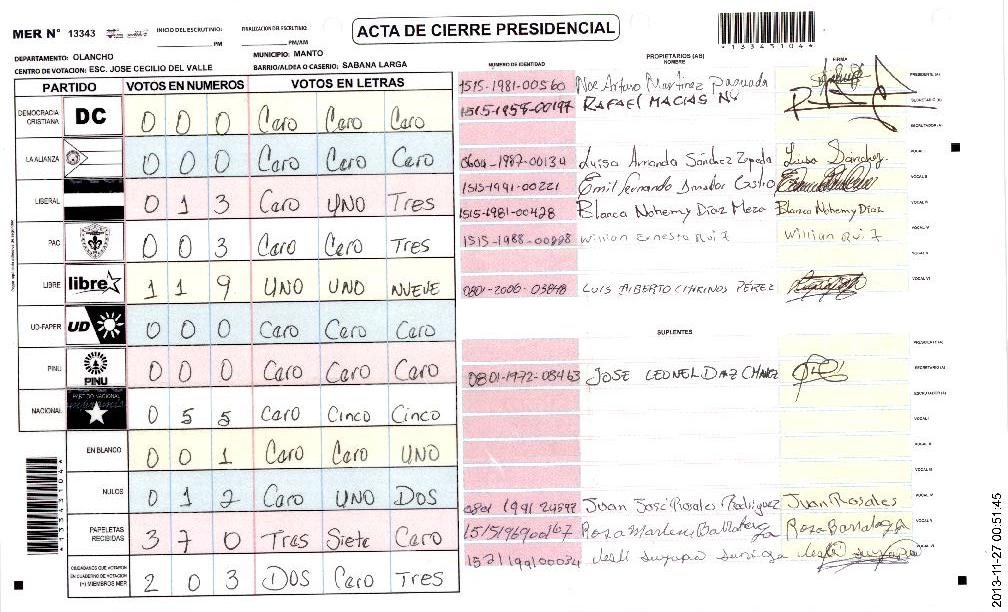 MER N° 13343 INICIO DEL ESCRUTINIO: PM FINALIZACION DEL ESCRUTINIO: PM/AM
ACTA DE CIERRE PRESIDENCIAL
*13345104*
DEPARTAMENTO: OLANCHO MUNICIPIO: MANTO
CENTRO DE VOTACION: ESC. JOSE CECILIO DEL VALLE BARRIO/ALDEA O CASERIO: SABANA LARGA
PARTIDO VOTOS EN NUMEROS VOTOS EN LETRAS
DEMOCRACIA CRISTIANA DC 0 0 0 Cero Cero Cero
LA ALIANZA 0 0 0 Cero Cero Cero
LIBERAL 0 1 3 Cero UNO Tres
PAC 0 0 3 Cero Cero Tres
LIBRE libre 1 1 9 UNO UNO NUEVE
UD-FAPER UD 0 0 0 Cero Cero Cero
PINU PINU 0 0 0 Cero Cero Cero
NACIONAL PARTIDO NACIONAL 0 5 5 Cero Cinco Cinco
EN BLANCO 0 0 1 Cero Cero UNO
NULOS 0 1 2 Cero UNO DOS
PAPELETAS RECIBIDAS 3 7 0 Tres Siete Cero
CIUDADANOS QUE VOTARON EN CUADERNO DE VOTACION (+) MIEMBROS MER 2 0 3 DOS Cero Tres
*13345104*
NUMERO DE IDENTIDAD PROPIETARIOS (AS) NOMBRE FIRMA
1515-1981-00560 Noe Arturo Martinez PRESIDENTE (A)
1515-1958-00197 RAFAEL MACIAS SECRETARIO (A)
ESCRUTADOR (A)
0604-1987-00134 Luisa Amanda Sánchez Zepeda Luisa Sánchez. VOCAL I
1515-1991-00221 Emil Fernando Amador Castro VOCAL II
1515-1981-00428 Blanca Nohemy Díaz Meza Blanca Nohemy Díaz
1515-1988-00998 Willian Ernesto Ruiz Willian Ruiz
0801-2006-03848 LUIS ALBERTO PÉREZ
SUPLENTES
PRESIDENTE (A)
0801-1972-08463 JOSE LEONEL DIAZ SECRETARIO (A)
ESCRUTADOR (A)
VOCAL I
VOCAL II
VOCAL III
0801 1991 Juan José Rosales Rodriguez Juan Rosales VOCAL IV
Rosa Marleni Rosa Barralaga VOCAL V
VOCAL VI
2013-11-27 00:51:45